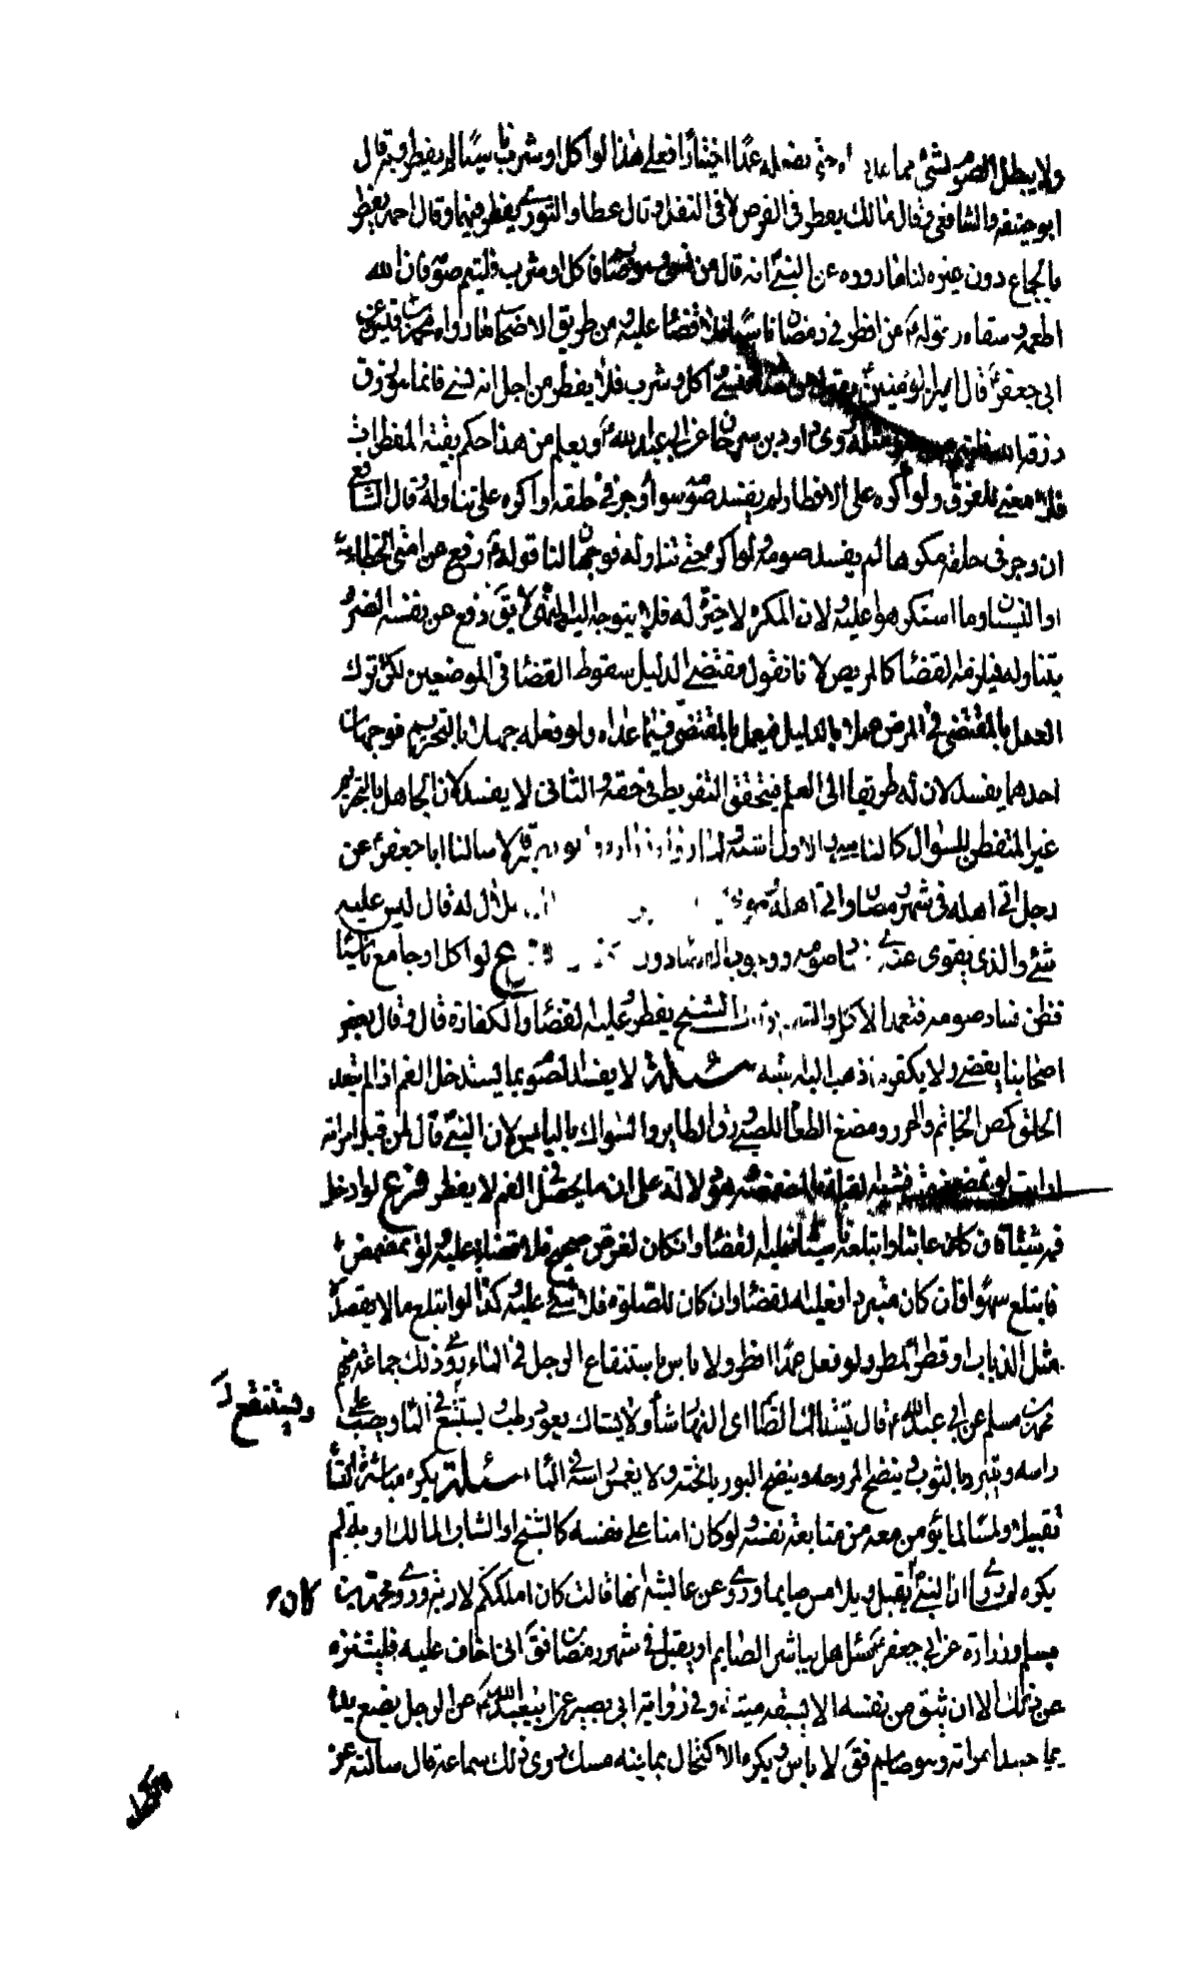 ولا يبطل الصوم بشئ مما عددناه حتى يفعله عمدا اختيارا فعلى هذا لو اكل او شرب ناسيا لم يفطر وبه قال
ابو حنيفه والشافعى وقال مالك يفطر فى الفرض لا فى النفل وقال عطا والثورى يفطر فيهما وقال احمد يفطر
بالجماع دون غيره لنا ما رووه عن النبى انه قال من نسى وهو صائم فاكل او شرب فليتم صومه فان الله
اطعمه وسقاه وقوله من افطر فى رمضان ناسيا فلا قضا عليه ومن طريق الاصحاب ما رواه محمد بن قيس عن
ابى جعفر قال امير المؤمنين يقول من صام فنسى اكل وشرب فلا يفطر من اجل انه نسى فانما هو رزق
رزقه الله فليتم ومثله روى داود بن سرحان عن ابى عبد الله ويعلم من هذا حكم بقية المفطرات
فلا معنى للفرق ولو اكره على الافطار لم يفسد صومه سوا وجر فى حلقه او اكره على تناوله وقال الشافعى
ان وجر فى حلقه مكرها لم يفسد صومه ولو اكره حتى تناوله فوجهان لنا قوله رفع عن امتى الخطاء
او النسيان وما استكرهوا عليه ولان المكره لا خيرة له فلا يتوجه اليه النهى لا يق دفع عن نفسه الضرر
بتناوله فيلزمه القضا كالمريض لانا نقول مقتضى الدليل سقوط القضا فى الموضعين لكن ترك
العمل بالمقتضى فى المرض عملا بالدليل فيعمل بالمقتضى فيما عداه ولو فعله جهلا بالتحريم فوجهان
احدهما يفسد لان له طريقا الى العلم فيتحقق التفريط فى حقه والثانى لا يفسد لان الجاهل بالتحريم
غير المتفطن للسؤال كالناسى والاول اشبه قالا سالنا ابا جعفر عن
رجل اتى اهله فى شهر رمضان او اتى اهله وهو حلال له قال ليس عليه
شئ والذى يقوى عندى فساد صومه ووجوب فرع لو اكل او جامع ناسيا
فظن فساد صومه فتعمد الاكل قال الشيخ يفطر وعليه القضا والكفارة قال وقال بعض
اصحابنا يقضى ولا يكفر مسئلة لا يفسد الصوم بما يستدخل الفم اذا لم يتعد
الحلق كمص الخاتم والخرز ومضغ الطعام للصبى وزق الطاير والسواك باليابس لان النبى قال لمن قبل امراته
ارايت لو تمضمضت فشبه القبلة بالمضمضه وهو دلالة على ان ما يحصل فى الفم لا يفطر فرع لو ادخل
فيه شيئا فان كان عابثا وابتلعه ناسيا فعليه القضا وان كان لغرض صحيح فلا قضا عليه ولو تمضمض
فابتلع سهوا فان كان متبردا فعليه القضا وان كان للصلوة فلا شئ عليه وكذا لو ابتلع ما لا يقصد
مثل الذباب او قطر المطر ولو فعل عمدا افطر ولا باس باستنقاع الرجل فى الماء روى ذلك جماعة منهم
محمد بن مسلم عن ابى عبد الله قال يستاك الصائم اى النهار شاء ولا يستاك بعود رطب ويستنقع فى الماء ويصب على
ويستنقع
راسه ويتبرد بالثوب وينضح المروحه وينضح البوريا تحته ولا يغمس راسه فى الماء مسئلة يكره مباشرة النسا
تقبيلا ولمسا لما يؤمن معه من متابعة نفسه ولو كان امنا على نفسه كالشيخ او الشاب المالك اربه لم
يكره لما روى ان النبى يقبل ويلامس صايما وروى عن عايشه انها قالت كان املككم لاربه وروى محمد بن
كان
مسلم وزرارة عن ابى جعفر سئل هل يباشر الصايم او يقبل فى شهر رمضان فق انى اخاف عليه فليتنزه
عن ذلك الا ان يثق من نفسه الا يسبقه منيه وفى رواية ابى بصير عن ابى عبد الله عن الرجل يضع يده
على جسد امراته وهو صايم فق لا باس ويكره الاكتحال بما فيه مسك روى ذلك سماعة قال سالته عن